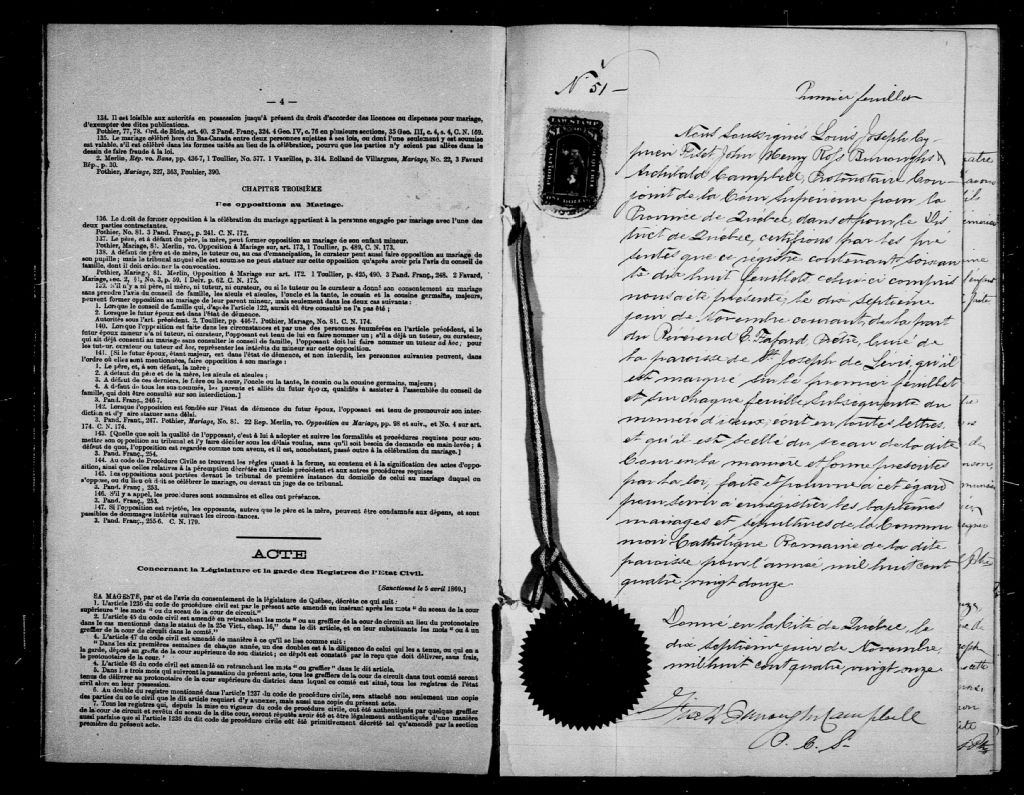 — 4 —
134. Il est loisible aux autorités en possession jusqu'à présent du droit d'accorder des licences ou dispenses pour mariage,
d'exempter des dites publications.
Pothier, 77, 78. Ord. de Blois, art. 40. 2 Pand. Franç., 324. 4 Geo. IV, c. 76 en plusieurs sections. 35 Geo. III, c. 4, s. 4, C. N. 169.
135. Le mariage célébré hors du Bas-Canada entre deux personnes sujettes à ses lois, ou dont l'une seulement y est soumise
est valable, s'il est célébré dans les formes usitées au lieu de la célébration, pourvu que les parties n'y soient pas allées dans le
dessein de faire fraude à la loi.
2. Merlin, Rép. vo. Bans, pp. 436-7, 1 Toullier, No. 577. 1 Vazeilles, p. 314. Rolland de Villargues, Mariage, No. 22, 3 Favard
Rép., p. 30.
Pothier, Mariage, 327, 363, Pouhier, 390.
CHAPITRE TROISIÈME
Des oppositions au Mariage.
136. Le droit de former opposition à la célébration du mariage appartient à la personne engagée par mariage avec l'une des
deux parties contractantes.
Pothier, No. 81. 3 Pand. Franç., p. 241. C. N. 172.
137. Le père, et à défaut du père, la mère, peut former opposition au mariage de son enfant mineur.
Pothier, Mariage, 81. Merlin, vo. Opposition à Mariage sur, art. 173, 1 Toullier, p. 489, C. N. 173.
138. A défaut de père et de mère, le tuteur ou, au cas d'émancipation, le curateur peut aussi faire opposition au mariage de
son pupille; mais le tribunal auquel elle est soumise ne peut statuer sur cette opposition qu'après avoir pris l'avis du conseil de
famille, dont il doit ordonner la convocation.
Pothier, Mariage, 81. Merlin, Opposition à Mariage sur art. 172. 1 Toullier, p. 425, 490. 3 Pand. Franç., 248. 2 Favard,
Mariage, sec. 2, §1, No. 3, p. 59. 1 Delv. p. 62. C. N. 175.
139. S'il n'y a ni père, ni mère, ni tuteur, ni curateur, ou si le tuteur ou le curateur a donné son consentement au mariage
sans prendre l'avis du conseil de famille, les aïeuls et aïeules, l'oncle et la tante, le cousin et la cousine germains, majeurs,
peuvent former opposition au mariage de leur parent mineur, mais seulement dans les deux cas suivants :
1. Lorsque le conseil de famille qui, d'après l'article 122, aurait dû être consulté ne l'a pas été ;
2. Lorsque le futur époux est dans l'état de démence.
Autorités sous l'art. précédent. 2. Toullier, pp. 446-7. Pothier, Mariage, No. 81. C. N. 174.
140. Lorsque l'opposition est faite dans les circonstances et par une des personnes énumérées en l'article précédent, si le
futur époux mineur n'a ni tuteur, ni curateur, l'opposant est tenu de lui en faire nommer un ; s'il a déjà un tuteur, ou curateur,
qui ait déjà consenti au mariage sans consulter le conseil de famille, l'opposant doit lui faire nommer un tuteur ad hoc ; pour
les tuteur, curateur, ou tuteur ad hoc, représenter les intérêts du mineur sur cette opposition.
141. [Si le futur époux, étant majeur, est dans l'état de démence, et non interdit, les personnes suivantes peuvent, dans
l'ordre où elles sont mentionnées, faire opposition à son mariage :
1. Le père, et, à son défaut, la mère ;
2. A défaut du père et de la mère, les aïeuls et aïeules ;
3. A défaut de ces derniers, le frère ou la sœur, l'oncle ou la tante, le cousin ou la cousine germains, majeurs ;
4. A défaut de tous les sus-nommés, les parents et alliés du futur époux, qualifiés à assister à l'assemblée du conseil de
famille, qui doit être consulté sur son interdiction.]
3. Pand. Franç., 246-7.
142. Lorsque l'opposition est fondée sur l'état de démence du futur époux, l'opposant est tenu de promouvoir son inter-
diction et d'y faire statuer sans délai.
3. Pand. Franç., 247. Pothier, Mariage, No. 81. 22 Rép. Merlin, vo. Opposition au Mariage, pp. 98 et suiv., et No. 4 sur art.
174. C. N. 174.
143. [Quelle que soit la qualité de l'opposant, c'est à lui à adopter et suivre les formalités et procédures requises pour sou-
mettre son opposition au tribunal et l'y faire décider sous les délais voulus, sans qu'il soit besoin de demande en main-levée ; à
défaut de quoi, l'opposition est regardée comme non avenue, et il est, nonobstant, passé outre à la célébration du mariage.]
3. Pand. Franç., 254.
144. Au code de Procédure Civile se trouvent les règles quant à la forme, au contenu et à la signification des actes d'oppo-
sition, ainsi que celles relatives à la péremption décrétée en l'article précédent et aux autres procédures requises
145. Les oppositions sont portées devant le tribunal de première instance du domicile de celui au mariage duquel on
s'oppose, ou du lieu où doit se célébrer le mariage, ou devant un juge de ce tribunal.
3. Pand. Franç., 253.
146. S'il y a appel, les procédures sont sommaires et elles ont préséance.
3. Pand. Franç., 253.
147. Si l'opposition est rejetée, les opposants, autres que le père et la mère, peuvent être condamnés aux dépens, et sont
passibles de dommages intérêts suivant les circonstances.
3. Pand. Franç., 255-6. C. N. 179.
ACTE
Concernant la Législature et la garde des Registres de l'Etat Civil.
[Sanctionné le 5 avril 1869.]
SA MAGESTE, par et de l'avis du consentement de la législature de Québec, décrète ce qui suit :
1. L'article 1236 du code de procédure civil est par le présent acte amendé en insérant après les mots " du sceau de la cour
supérieure " les mots " ou du sceau de la cour de circuit."
2. L'article 45 du code civil est amendé en retranchant les mots " ou au greffier de la cour de circuit au lieu du protonotaire
dans le cas mentionné dans le statut de la 25e Vict., chap. 16," dans le dit article, et en leur substituants les mots " ou à un
greffier de la cour de circuit dans le comté."
4. L'article 47 du code civil est amendé de manière à ce qu'il se lise comme suit :
" Dans les six premières semaines de chaque année, un des doubles est à la diligence de celui qui les a tenus, ou qui en a
la garde, déposé au greffe de la cour supérieure de son district ; ce dépôt est constaté par le reçu que doit délivrer, sans frais,
le protonotaire de la cour. "
4. L'article 48 du code civil est amendé en retranchant les mots " ou greffier " dans le dit article.
5. Dans les trois mois qui suivront la passation du présent acte, tous les greffiers de la cour de circuit dans tout comté seront
tenus de délivrer au protonotaire de la cour supérieure du district dans lequel ce comté est situé, tous les registres de l'état
civil alors en leur possession.
6. Au double du registre mentionné dans l'article 1237 du code de procédure civile, sera attaché non seulement une copie
des parties du code civil que le dit article requiert d'y annexer, mais aussi une copie du présent acte.
7. Tous les registres qui, depuis la mise en vigueur du code de procédure civile, ont été authentiqués par quelque greffier
de la cour de circuit et revêtu du sceau de la dite cour, seront réputés avoir été et être légalement authentiqués d'une manière
aussi parfaite que si l'article 1236 du dit code de procédure civile eût été primitivement décrété tel qu'amendé par la section
première du présent acte.
No 51 —
Premier feuillet
Nous Soussignés Louis Joseph Cy-
prien Fiset, John Henry Ross Burroughs &
Archibald Campbell, Protonotaire Con-
joint de la Cour Supérieure pour la
Province de Québec, dans et pour le Dis-
trict de Québec, certifions par les pré-
sentes que ce registre contenant soixan
te dix huit feuillets, celui-ci compris
nous a été présenté, le dix septieme
jour de Novembre courant, de la part
du Révérend E. Fafard Ptre, Curé de
la paroisse de St Joseph de Lévis, qu'il
est marqué sur le premier feuillet
et sur chaque feuillet subséquent du
numéro d'iceux, écrit en toutes lettres
et qu'il est scellé du sceau de la dite
Cour en la manière et forme prescrites
par la loi, faite et pourvue à cet égard
pour servir à enrégistrer les baptêmes
mariages et sépultures de la Commu
nion Catholique Romaine de la dite
paroisse pour l'année mil huit cent
quatre vingt douze
Donné en la Cité de Québec, le
dix septieme jour de Novembre,
mil huit cent quatre vingt onze
Fiset Burroughs Campbell
P. C. S.